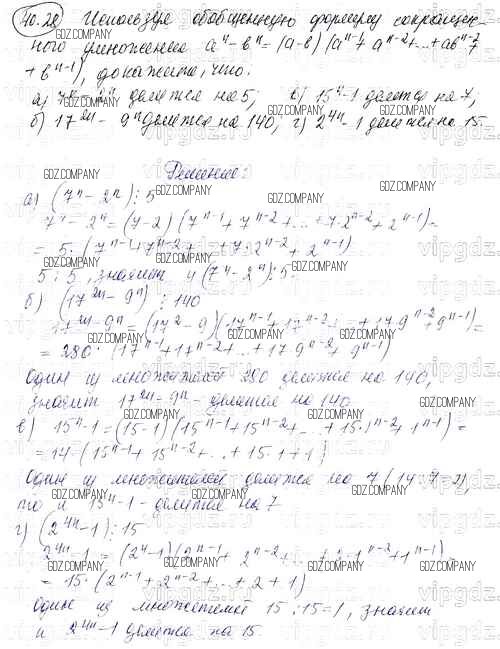 40.28 Используя обобщенную формулу сокращен-
ного умножения aⁿ-bⁿ=(a-b)(aⁿ⁻¹+aⁿ⁻²+...+abⁿ⁻²+
+bⁿ⁻¹), докажите, что:
а) 7ⁿ-2ⁿ делется на 5; в) 15ⁿ-1 делется на 7;
б) 17²ⁿ-9ⁿ делется на 140, г) 2⁴ⁿ-1 делется на 15.
Решение:
а) (7ⁿ-2ⁿ) ⋮ 5
7ⁿ-2ⁿ=(7-2)(7ⁿ⁻¹+7ⁿ⁻²+...+7·2ⁿ⁻²+2ⁿ⁻¹)=
= 5·(7ⁿ⁻¹+7ⁿ⁻²+...+7·2ⁿ⁻²+2ⁿ⁻¹)
5 ⋮ 5, значит и (7ⁿ-2ⁿ) ⋮ 5.
б) (17²ⁿ-9ⁿ) ⋮ 140
17²ⁿ-9ⁿ=(17²-9)(17ⁿ⁻¹+17ⁿ⁻²+...+17·9ⁿ⁻²+9ⁿ⁻¹)=
= 280·(17ⁿ⁻¹+17ⁿ⁻²+...+17·9ⁿ⁻²+9ⁿ⁻¹)
Один из множителей 280 делется на 140,
значит 17²ⁿ-9ⁿ - делется на 140.
в) 15ⁿ-1=(15-1)(15ⁿ⁻¹+15ⁿ⁻²+...+15·1ⁿ⁻²+1ⁿ⁻¹)=
=14·(15ⁿ⁻¹+15ⁿ⁻²+...+15·1+1)
Один из множителей делется на 7 (14:7=2),
то и 15ⁿ-1 - делется на 7
г) (2⁴ⁿ-1) ⋮ 15
2⁴ⁿ-1=(2⁴-1)(2ⁿ⁻¹+2ⁿ⁻²+...+2·1ⁿ⁻²+1ⁿ⁻¹)=
= 15·(2ⁿ⁻¹+2ⁿ⁻²+...+2+1)
Один из множителей 15:15=1, значит
и 2⁴ⁿ-1 делется на 15.